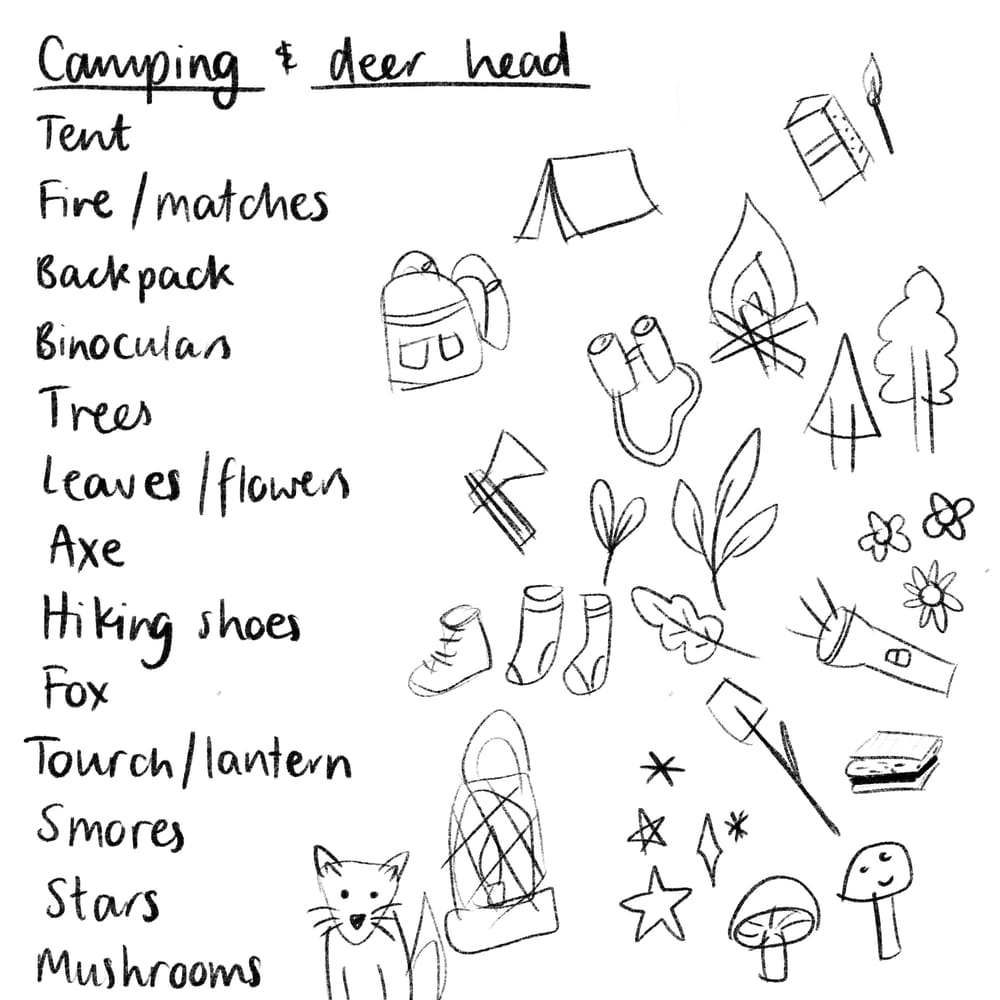 Camping & deer head
Tent
Fire/matches
Backpack
Binoculars
Trees
Leaves/flowers
Axe
Hiking shoes
Fox
Tourch/lantern
Smores
Stars
Mushrooms